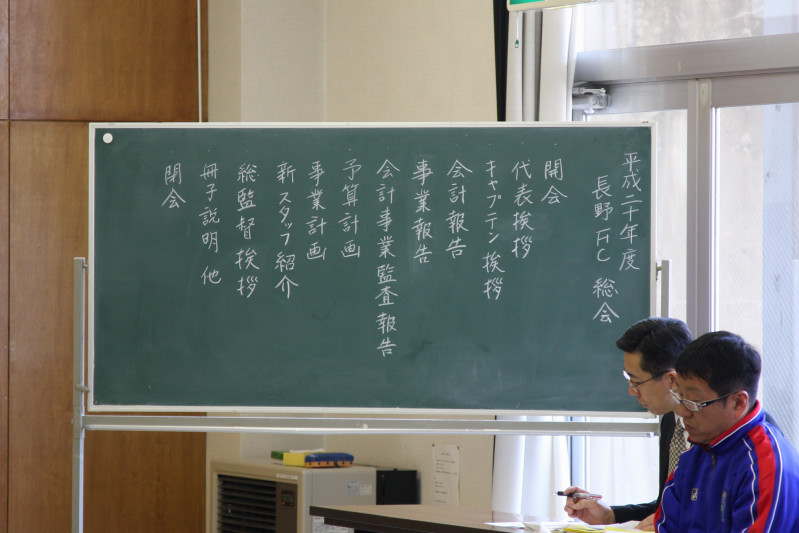 平成二十年度
長野FC 総会
開会
代表挨拶
キャプテン挨拶
会計報告
事業報告
会計事業監査報告
予算計画
事業計画
新スタッフ紹介
総監督挨拶
冊子説明他
閉会